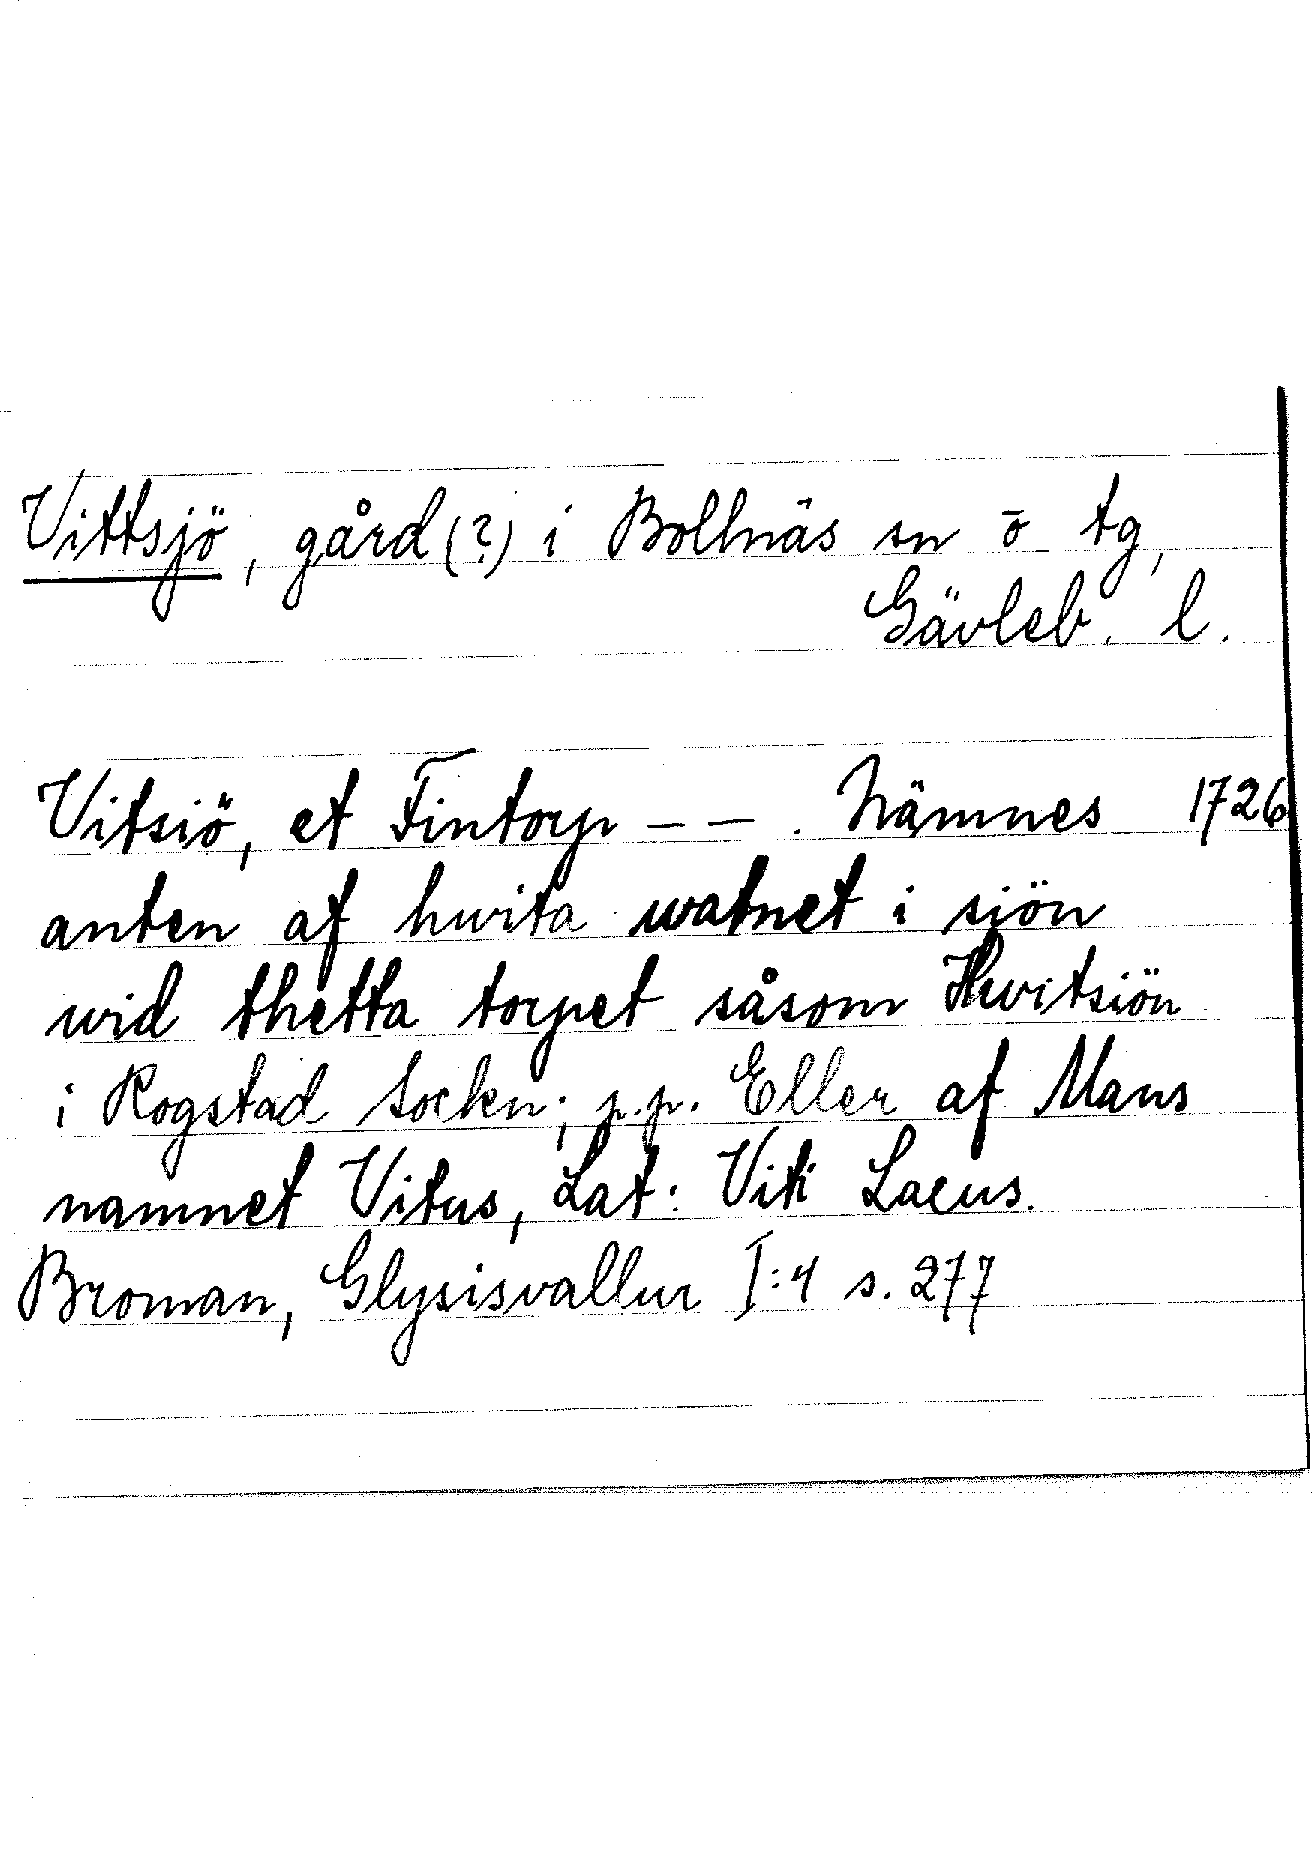 Vittsjö, gård (?) i Bollnäs sn ö tg,
Gävleb. l.
Vitsiö, et Fintorp – – . Nämnes 1726
anten af hwita watnet i siön
wid thetta torpet såsom Hwitsiön
i Rogstad Socken; p.p. Eller af Mans
namnet Vitus, Lat: Viti Lacus.
Broman, Glysisvallur I:4 s. 277